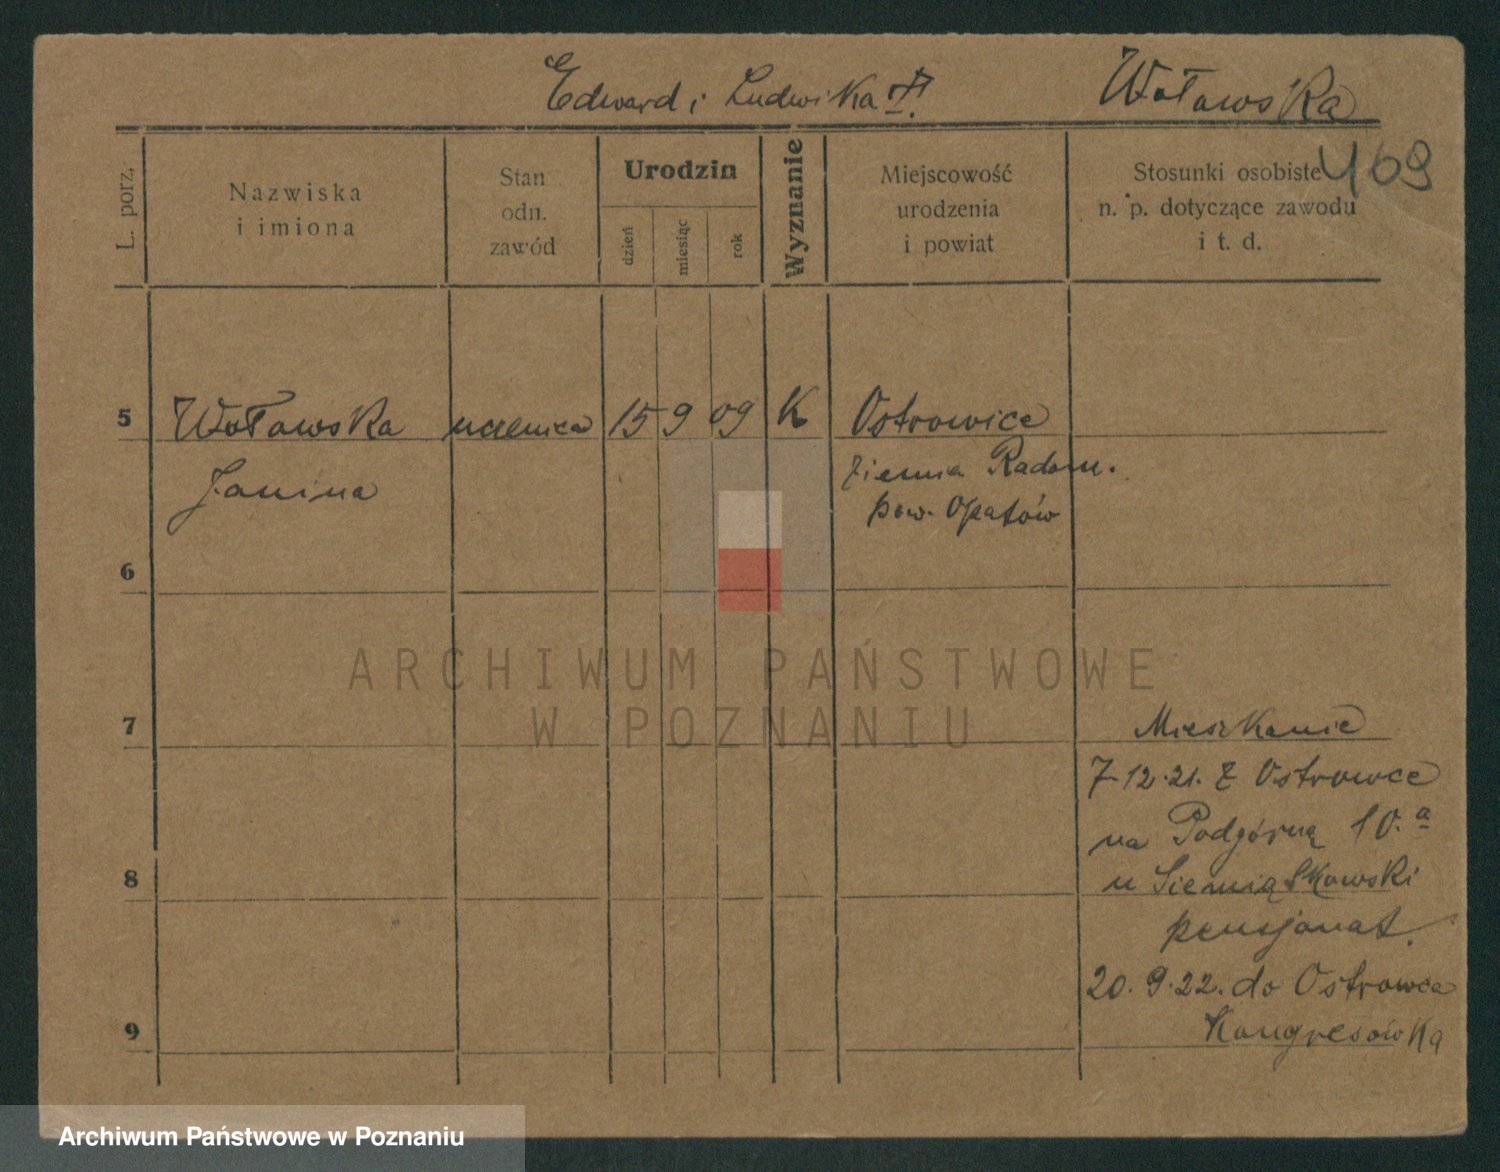 Edward i Ludwika
Wołowska
469
L. porz.
Nazwiska
i imiona
Stan
odn.
zawód
Urodzin
dzień
miesiąc
rok
Wyznanie
Miejscowość
urodzenia
i powiat
Stosunki osobiste
n. p. dotyczące zawodu
i t. d.
5
Wołowska
uczenica
15 9 09
K
Ostrowice
Janina
ziemia Radom.
pow. Opatów
6
ARCHIWUM PAŃSTWOWE
W POZNANIU
7
Mieszkanie
7.12.21. z Ostrowce
na Podgórną 10.a
8
u Siemiątkowski
pensjonat.
20.9.22. do Ostrowca
9
Kongresówka
Archiwum Państwowe w Poznaniu